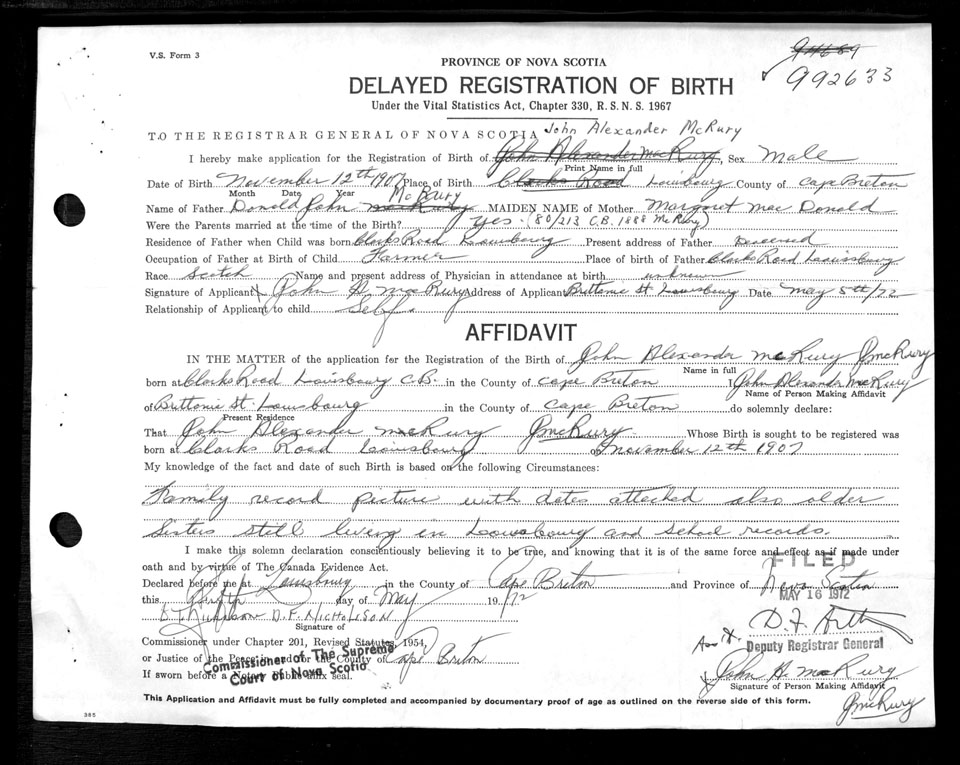 V.S. Form 3
94689
992633
PROVINCE OF NOVA SCOTIA
DELAYED REGISTRATION OF BIRTH
Under the Vital Statistics Act, Chapter 330, R.S.N.S. 1967
John Alexander McRury
TO THE REGISTRAR GENERAL OF NOVA SCOTIA
I hereby make application for the Registration of Birth of John Alexander MacRury, Sex Male
Print Name in full
Date of Birth November 12th 1907 Place of Birth Clarks Road Louisbourg County of Cape Breton
Month Date Year
McRury
Name of Father Donald John MacRury MAIDEN NAME of Mother Margaret Mac Donald
Were the Parents married at the time of the Birth? yes. (80/213 C.B. 1888 McRury)
Residence of Father when Child was born Clarks Road Louisbourg Present address of Father Deceased
Occupation of Father at Birth of Child Farmer Place of birth of Father Clarks Road Louisbourg
Race Scotch Name and present address of Physician in attendance at birth unknown
Signature of Applicant X John A MacRury Address of Applicant Brittonie St. Louisbourg Date May 5th/72
Relationship of Applicant to child Self.
AFFIDAVIT
IN THE MATTER of the application for the Registration of the Birth of John Alexander McRury JMcRury
Name in full
born at Clarks Road Louisbourg C.B. in the County of Cape Breton I John Alexander McRury
Name of Person Making Affidavit
of Brittonie St. Louisbourg in the County of Cape Breton do solemnly declare:
Present Residence
That John Alexander McRury JMcRury Whose Birth is sought to be registered was
born at Clarks Road Louisbourg on November 12th 1907
My knowledge of the fact and date of such Birth is based on the following Circumstances:
Family record picture with dates attached also older
Sisters still living in Louisbourg and School records.
I make this solemn declaration conscientiously believing it to be true, and knowing that it is of the same force and effect as if made under
oath and by virtue of The Canada Evidence Act.
FILED
Declared before me at Louisbourg in the County of Cape Breton and Province of Nova Scotia
MAY 16 1972
this day of May 1972
D.F. NICHOLSON
Signature of
Commissioner under Chapter 201, Revised Statutes, 1954,
Deputy Registrar General
or Justice of the Peace in and for the County of Cape Breton
Commissioner of The Supreme
Court of Nova Scotia
If sworn before a Notary Public affix seal.
John A MacRury
Signature of Person Making Affidavit
JMcRury
This Application and Affidavit must be fully completed and accompanied by documentary proof of age as outlined on the reverse side of this form.
385